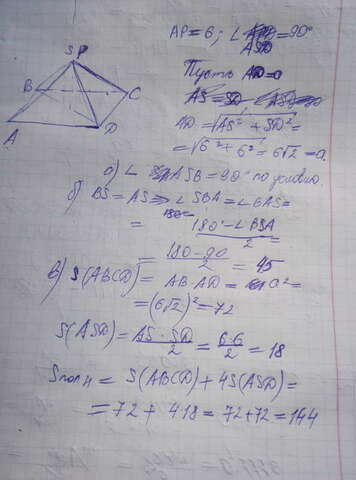 AP = 6; ∠ ASD = 90°
SP
B
C
A
D
Пусть AD = a
AS = SD
AD = √AS² + SD² =
= √6² + 6² = 6√2 = a.
а) ∠ ASB = 90° по условию.
б) BS = AS ⇒ ∠ SBA = ∠ BAS =
= 180° - ∠ BSA / 2 =
= 180 - 90 / 2 = 45
в) S(ABCD) = AB · AD = a² =
= (6√2)² = 72
S(ASD) = AS · SD / 2 = 6·6 / 2 = 18
Sполн = S(ABCD) + 4S(ASD) =
= 72 + 4·18 = 72 + 72 = 144